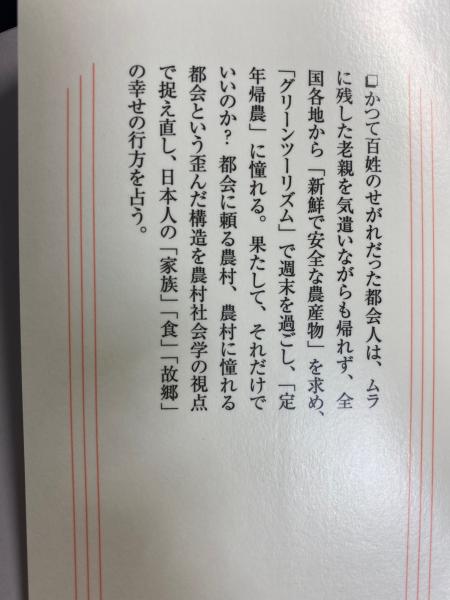 ❏かつて百姓のせがれだった都会人は、ムラ
に残した老親を気遣いながらも帰れず、全
国各地から「新鮮で安全な農産物」を求め、
「グリーンツーリズム」で週末を過ごし、「定
年帰農」に憧れる。果たして、それだけで
いいのか？ 都会に頼る農村、農村に憧れる
都会という歪んだ構造を農村社会学の視点
で捉え直し、日本人の「家族」「食」「故郷」
の幸せの行方を占う。